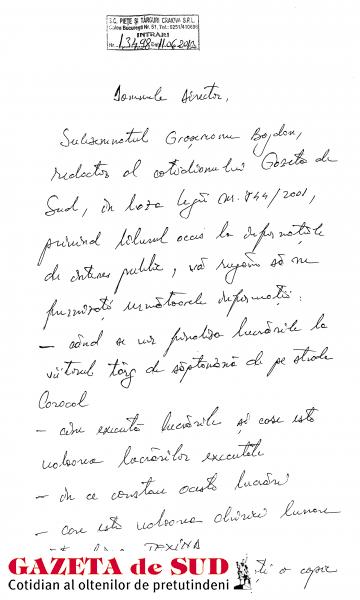 S.C. PIEŢE ŞI TÂRGURI CRAIOVA S.R.L.
Calea Bucureşti Nr. 51, Tel.: 0251/410696
INTRARI
Nr. 13498 11.06.2012
Domnule Director,
Subsemnatul Groşereanu Bogdan,
redactor al cotidianului Gazeta de
Sud, în baza legii nr. 544/2001,
privind liberul acces la informaţiile
de interes public, vă rugăm să ne
furnizaţi următoarele informaţii:
- când se vor finaliza lucrările la
viitorul târg de săptămână de pe strada
Caracal
- cine execută lucrările şi care este
valoarea lucrărilor executate
- în ce constau aceste lucrări
- care este valoarea chiriei lunare
GAZETA de SUD
Cotidian al oltenilor de pretutindeni
o copie